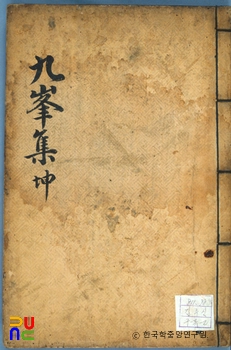 九峯集
坤
© 한국학중앙연구원